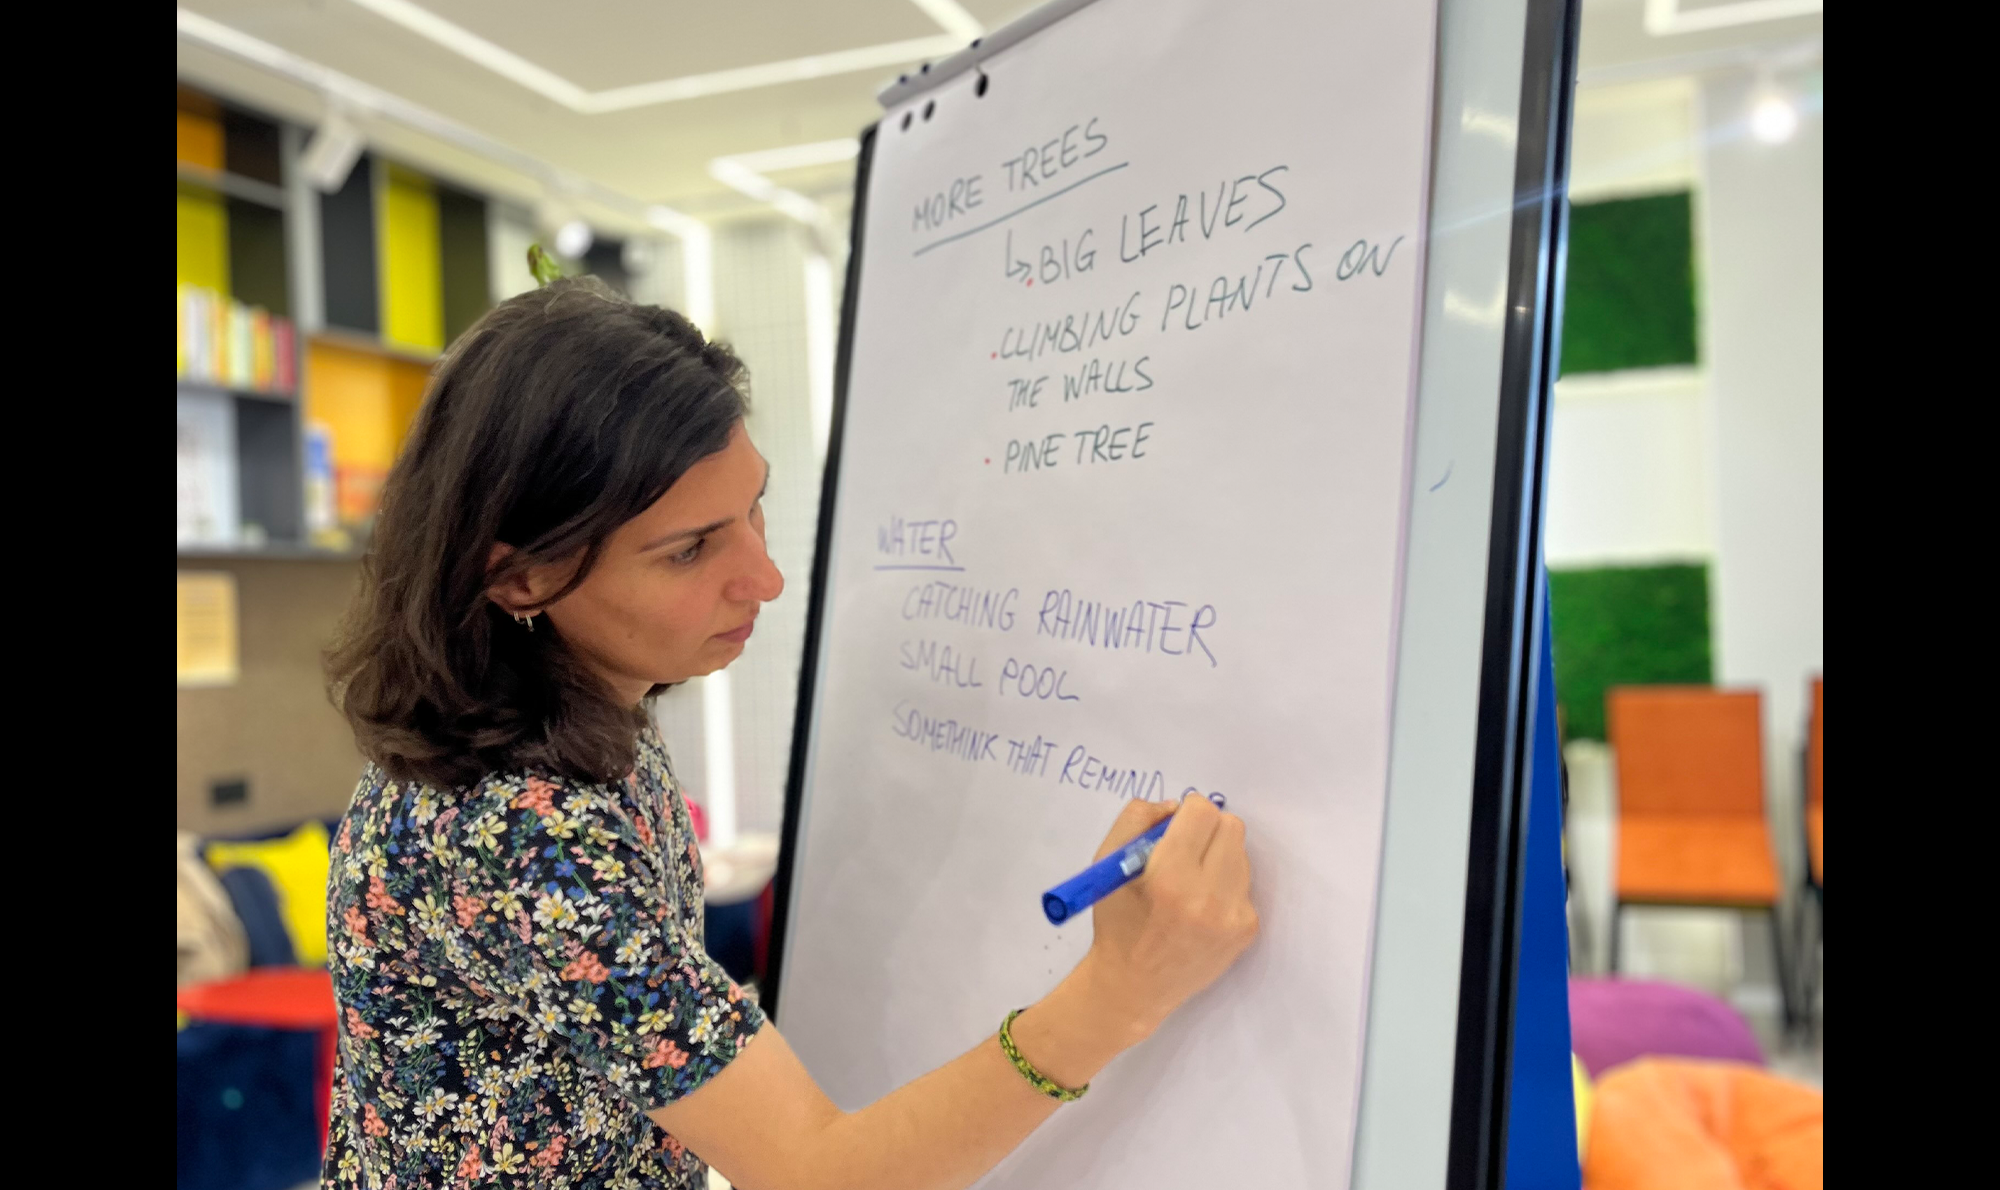 MORE TREES
↳ BIG LEAVES
• CLIMBING PLANTS ON
THE WALLS
• PINE TREE
WATER
CATCHING RAINWATER
SMALL POOL
SOMETHINK THAT REMIND